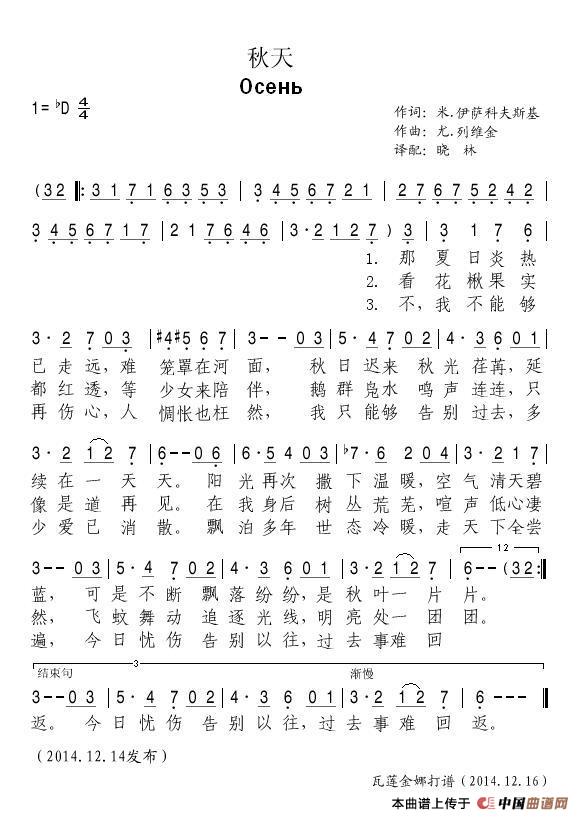 秋天
Осень
1=♭D 4/4
作词：米.伊萨科夫斯基
作曲：尤.列维金
译配：晓 林
(32 ‖: 31 71 63 53 | 34 56 7 21 | 27 67 52 42 |
34 56 7 17 | 21 76 46 | 3·2 12 7 ) 3 | 3 1 7 6 |
1. 那 夏 日 炎 热
2. 看 花 楸 果 实
3. 不，我 不 能 够
3·2 7 03 | #4#5 6 7 | 3- - 03 | 5·4 7 02 | 4·3 6 01 |
已 走 远，难 笼 罩 在 河 面， 秋 日 迟 来 秋 光 荏 苒，延
都 红 透，等 少 女 来 陪 伴， 鹅 群 凫 水 鸣 声 连 连，只
再 伤 心，人 惆 怅 也 枉 然， 我 只 能 够 告 别 过 去，多
3·2 12 7 | 6- - 06 | 6·5 4 03 | ♭7·6 2 04 | 3·2 1 7 |
续 在 一 天 天。 阳 光 再 次 撒 下 温 暖，空 气 清 天 碧
像 是 道 再 见。在 我 身 后 树 丛 荒 芜，喧 声 低 心 凄
少 爱 已 消 散。飘 泊 多 年 世 态 冷 暖，走 天 下 全 尝
12
3- - 03 | 5·4 7 02 | 4·3 6 01 | 3·2 12 7 | 6- - (32 :‖
蓝， 可 是 不 断 飘 落 纷 纷，是 秋 叶 一 片 片。
然， 飞 蚊 舞 动 追 逐 光 线，明 亮 处 一 团 团。
遍， 今 日 忧 伤 告 别 以 往，过 去 事 难 回
结束句 3 渐慢
3- - 03 | 5·4 7 02 | 4·3 6 01 | 3·2 12 7 | 6- - - ‖
返。 今 日 忧 伤 告 别 以 往，过 去 事 难 回 返。
(2014.12.14发布)
瓦莲金娜打谱(2014.12.16)
本曲谱上传于 中国曲谱网